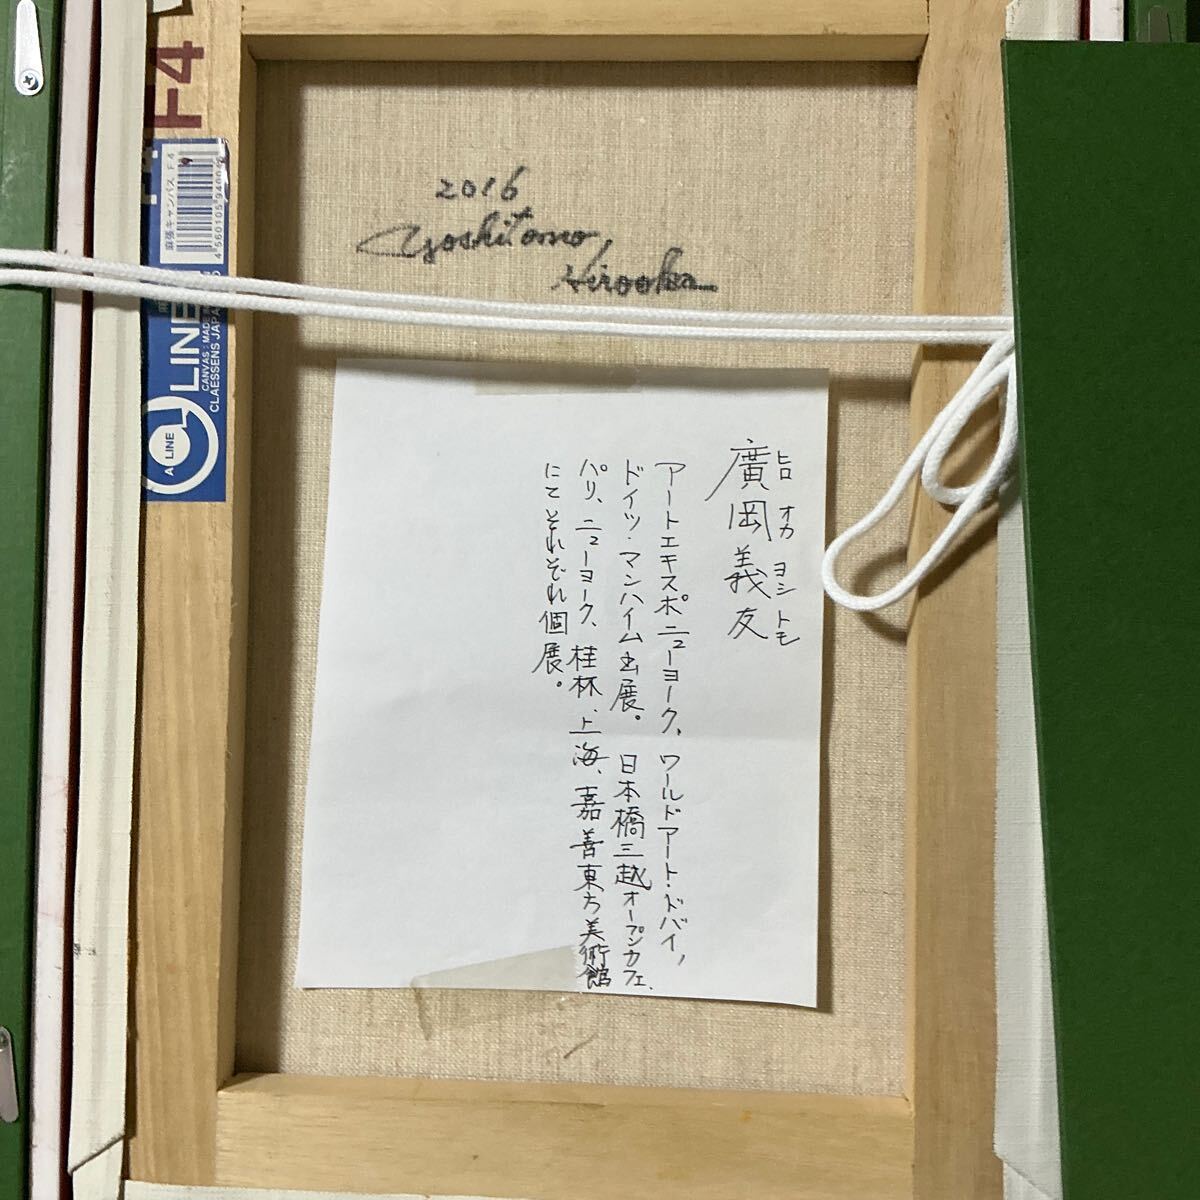 F4
麻張キャンバス F4
4560105940045
A LINE
LINE
CANVAS: MADE IN
CLAESSENS JAPA
2016
Yoshitomo,
Hirooka
ヒロ オカ ヨシ トモ
廣岡義友
アートエキスポニューヨーク、ワールドアート・ドバイ、
ドイツ・マンハイム出展。日本橋三越オープンカフェ、
パリ、ニューヨーク、桂林、上海、嘉善東方美術館
にてそれぞれ個展。